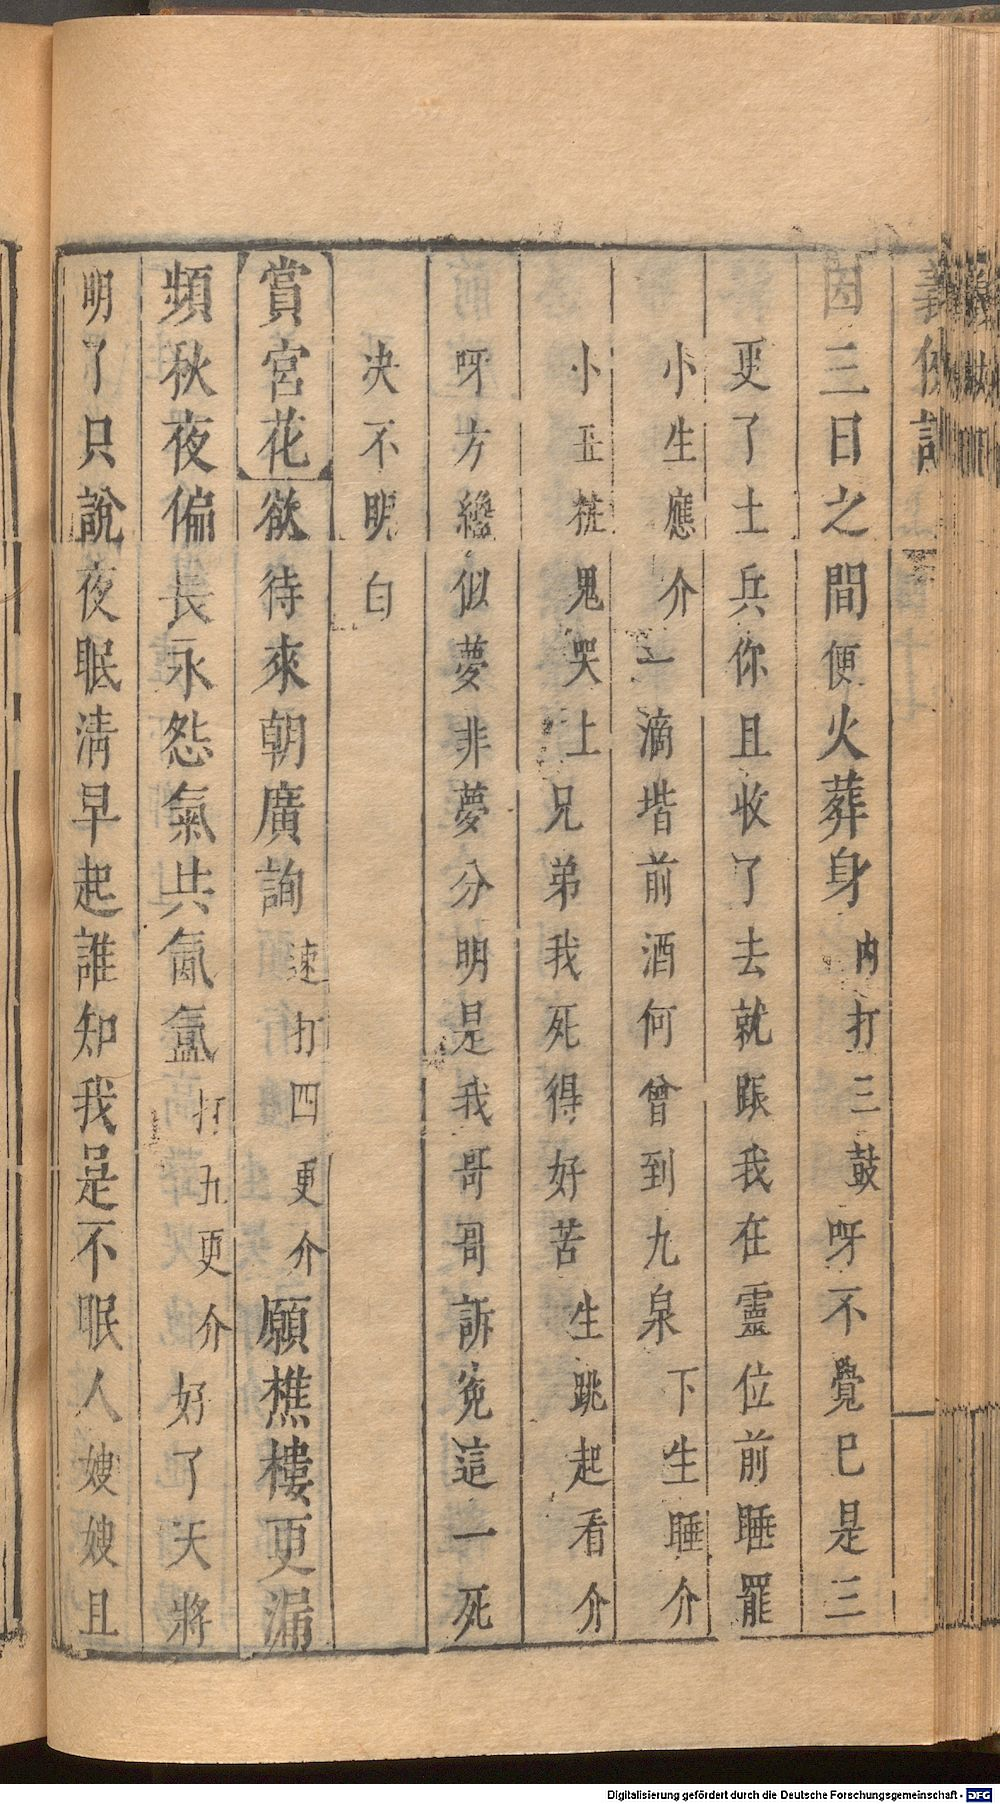 義俠記
因三日之間便火葬身內打三鼓呀不覺已是三
更了土兵你且收了去就跟我在靈位前睡罷
小生應介一滴堦前酒何曾到九泉下生睡介
小丑粧鬼哭上兄弟我死得好苦生跳起看介
呀方纔似夢非夢分明是我哥哥訴寃這一死
决不明白
賞宮花欲待來朝廣詢速打四更介願樵樓更漏
頻秋夜偏長永怨氣共氤氳打五更介好了天將
明了只說夜眠淸早起誰知我是不眠人嫂嫂且
Digitalisierung gefördert durch die Deutsche Forschungsgemeinschaft - DFG